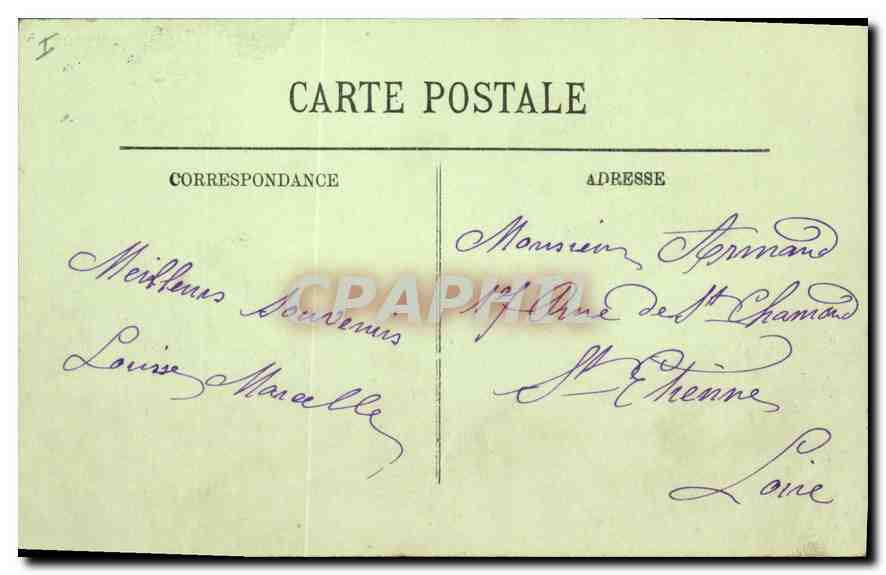 I
CARTE POSTALE
CORRESPONDANCE
Meilleurs Souvenirs
Louise Marcelle
ADRESSE
Monsieur Armand
17 Rue de St Chamond
St Etienne
Loire
CPAPHIL